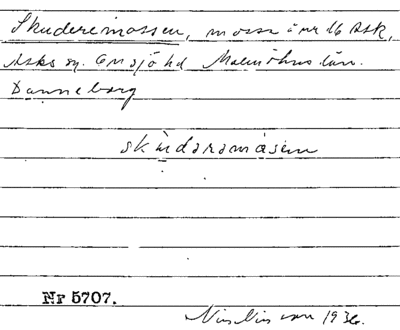 Skuderemossen, mosse å nr 16 Ask,
Asks sn. Onsjö hd Malmöhus län.
Danneborg
skùdaramåsen
Nr 5707.
1936.